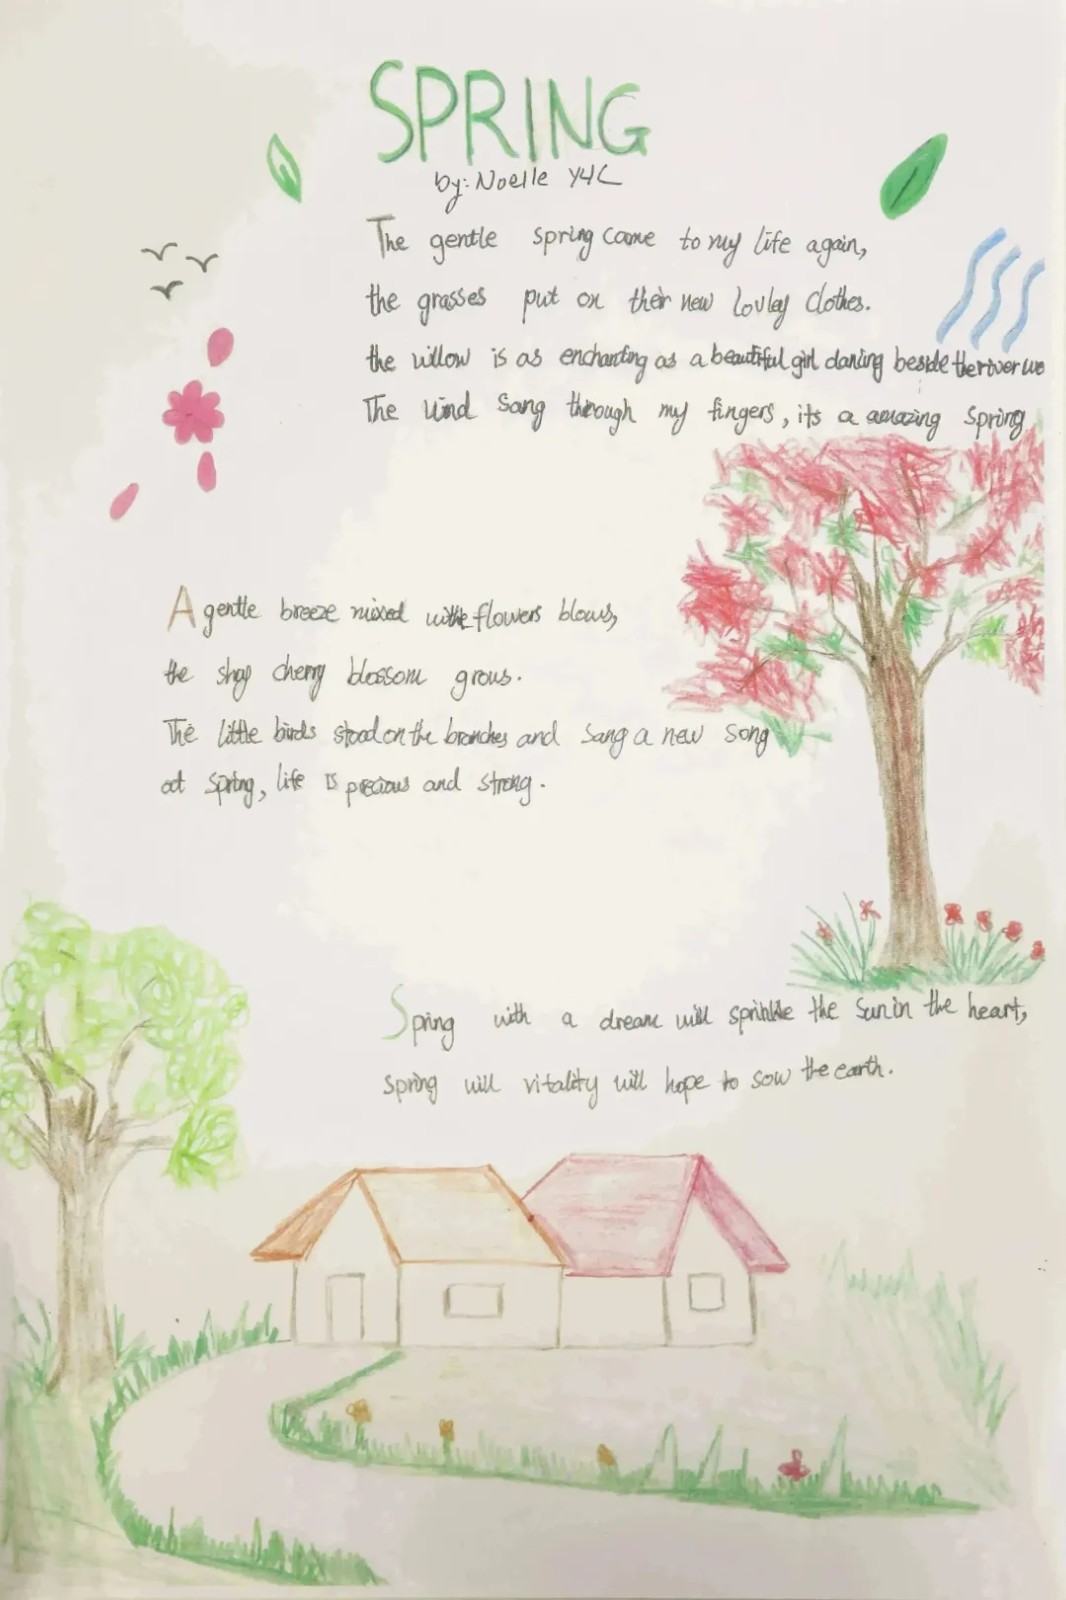 SPRING
by: Noelle Y4C
The gentle spring came to my life again,
the grasses put on their new lovley clothes.
the willow is as enchanting as a beautiful girl dancing beside the river
The wind sang through my fingers, its a amazing spring
A gentle breeze mixed with flowers blows,
the shap cherry blossom grows.
The little birds stood on the branches and sang a new song
at spring, life is precious and strong.
Spring with a dream will sprinkle the sun in the heart,
spring will vitality will hope to sow the earth.